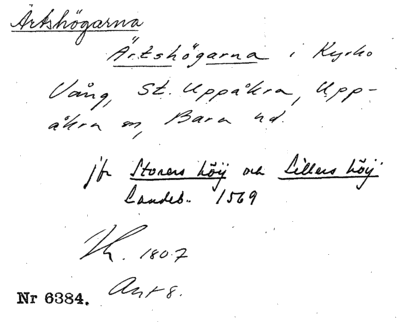 Ärtshögarna
Ärtshögarna i Kyrko
Vång, St. Uppåkra, Upp-
åkra sn, Bara hd.
jfr Storers höij och Lillers höij
Landeb. 1569
Kk. 1807
Akt 8.
Nr 6384.